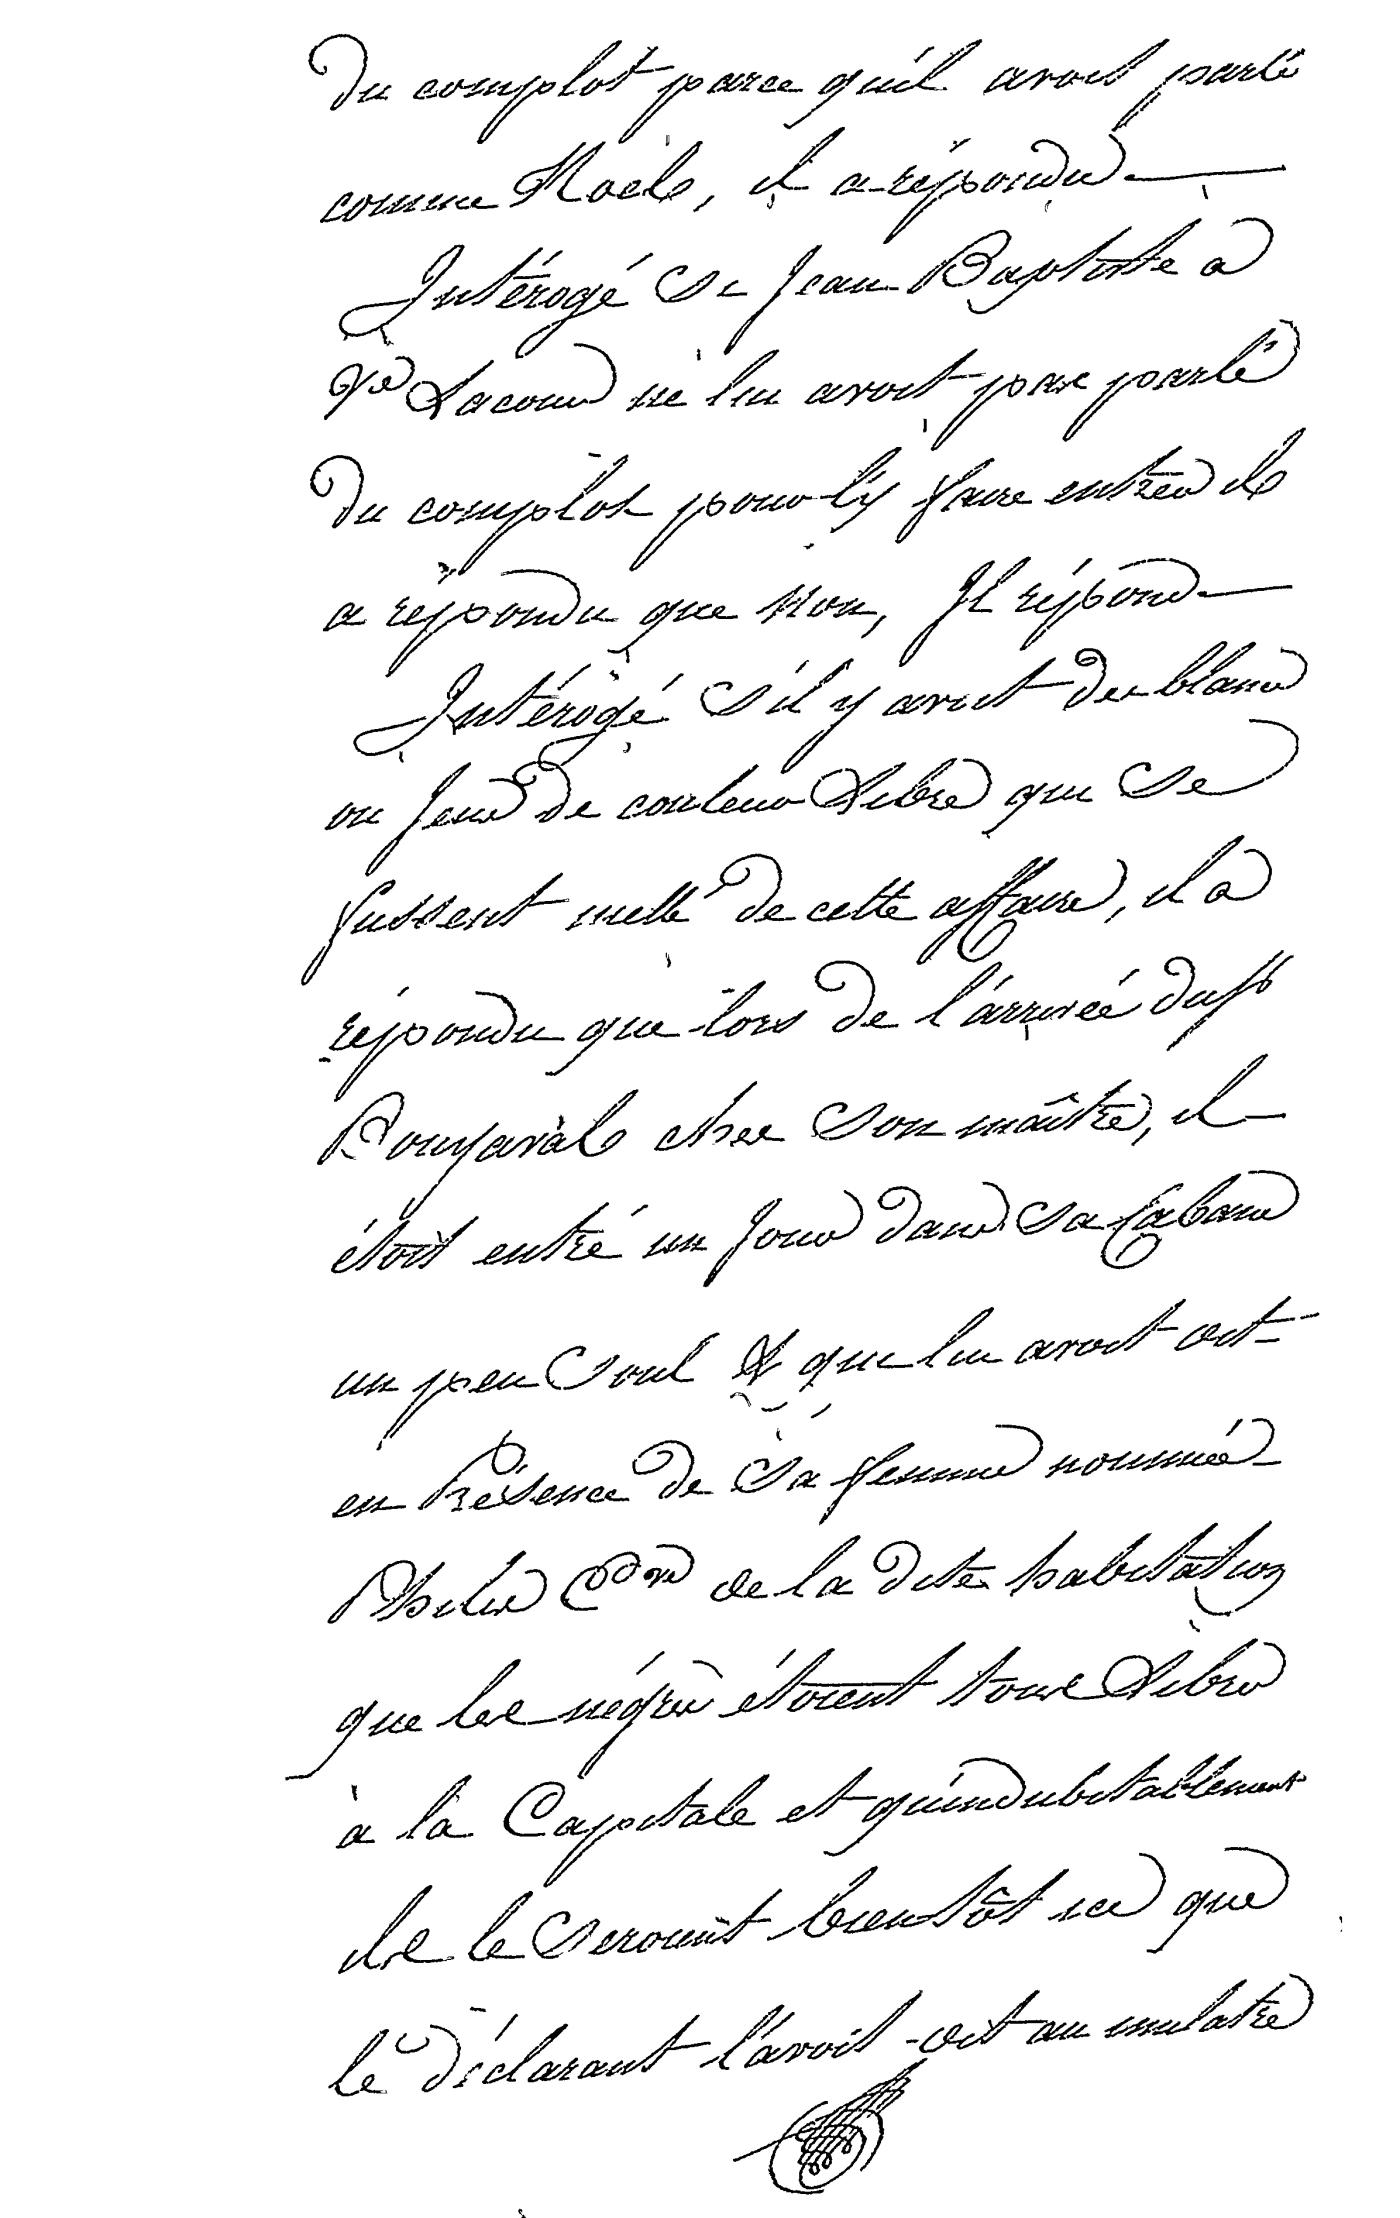 du complot parce qu'il avoit parlé
comme Noël, il a répondu
Intérogé si Jean Baptiste à
Ve Lacour ne lui avoit pas parlé
du complot pour l'y faire entrer il
a répondu que Non, Il répond
Intérogé s'il y avoit des blancs
ou Jens de couleur Libre qui se
fussent mellé de cette affaire, il a
répondu que lors de l'arrivée du Sr
Bouyaval chez son maître, il
étoit entré un Jour dans sa Cabane
un peu Soul & qui lui avoit dit
en Présence de Sa femme nommée
de la dite habitation
que les négres étoient tous Libres
à la Capitale et qu'indubitablement
ils le seroient bientôt ici que
le déclarant l'avoit dit au mulatre